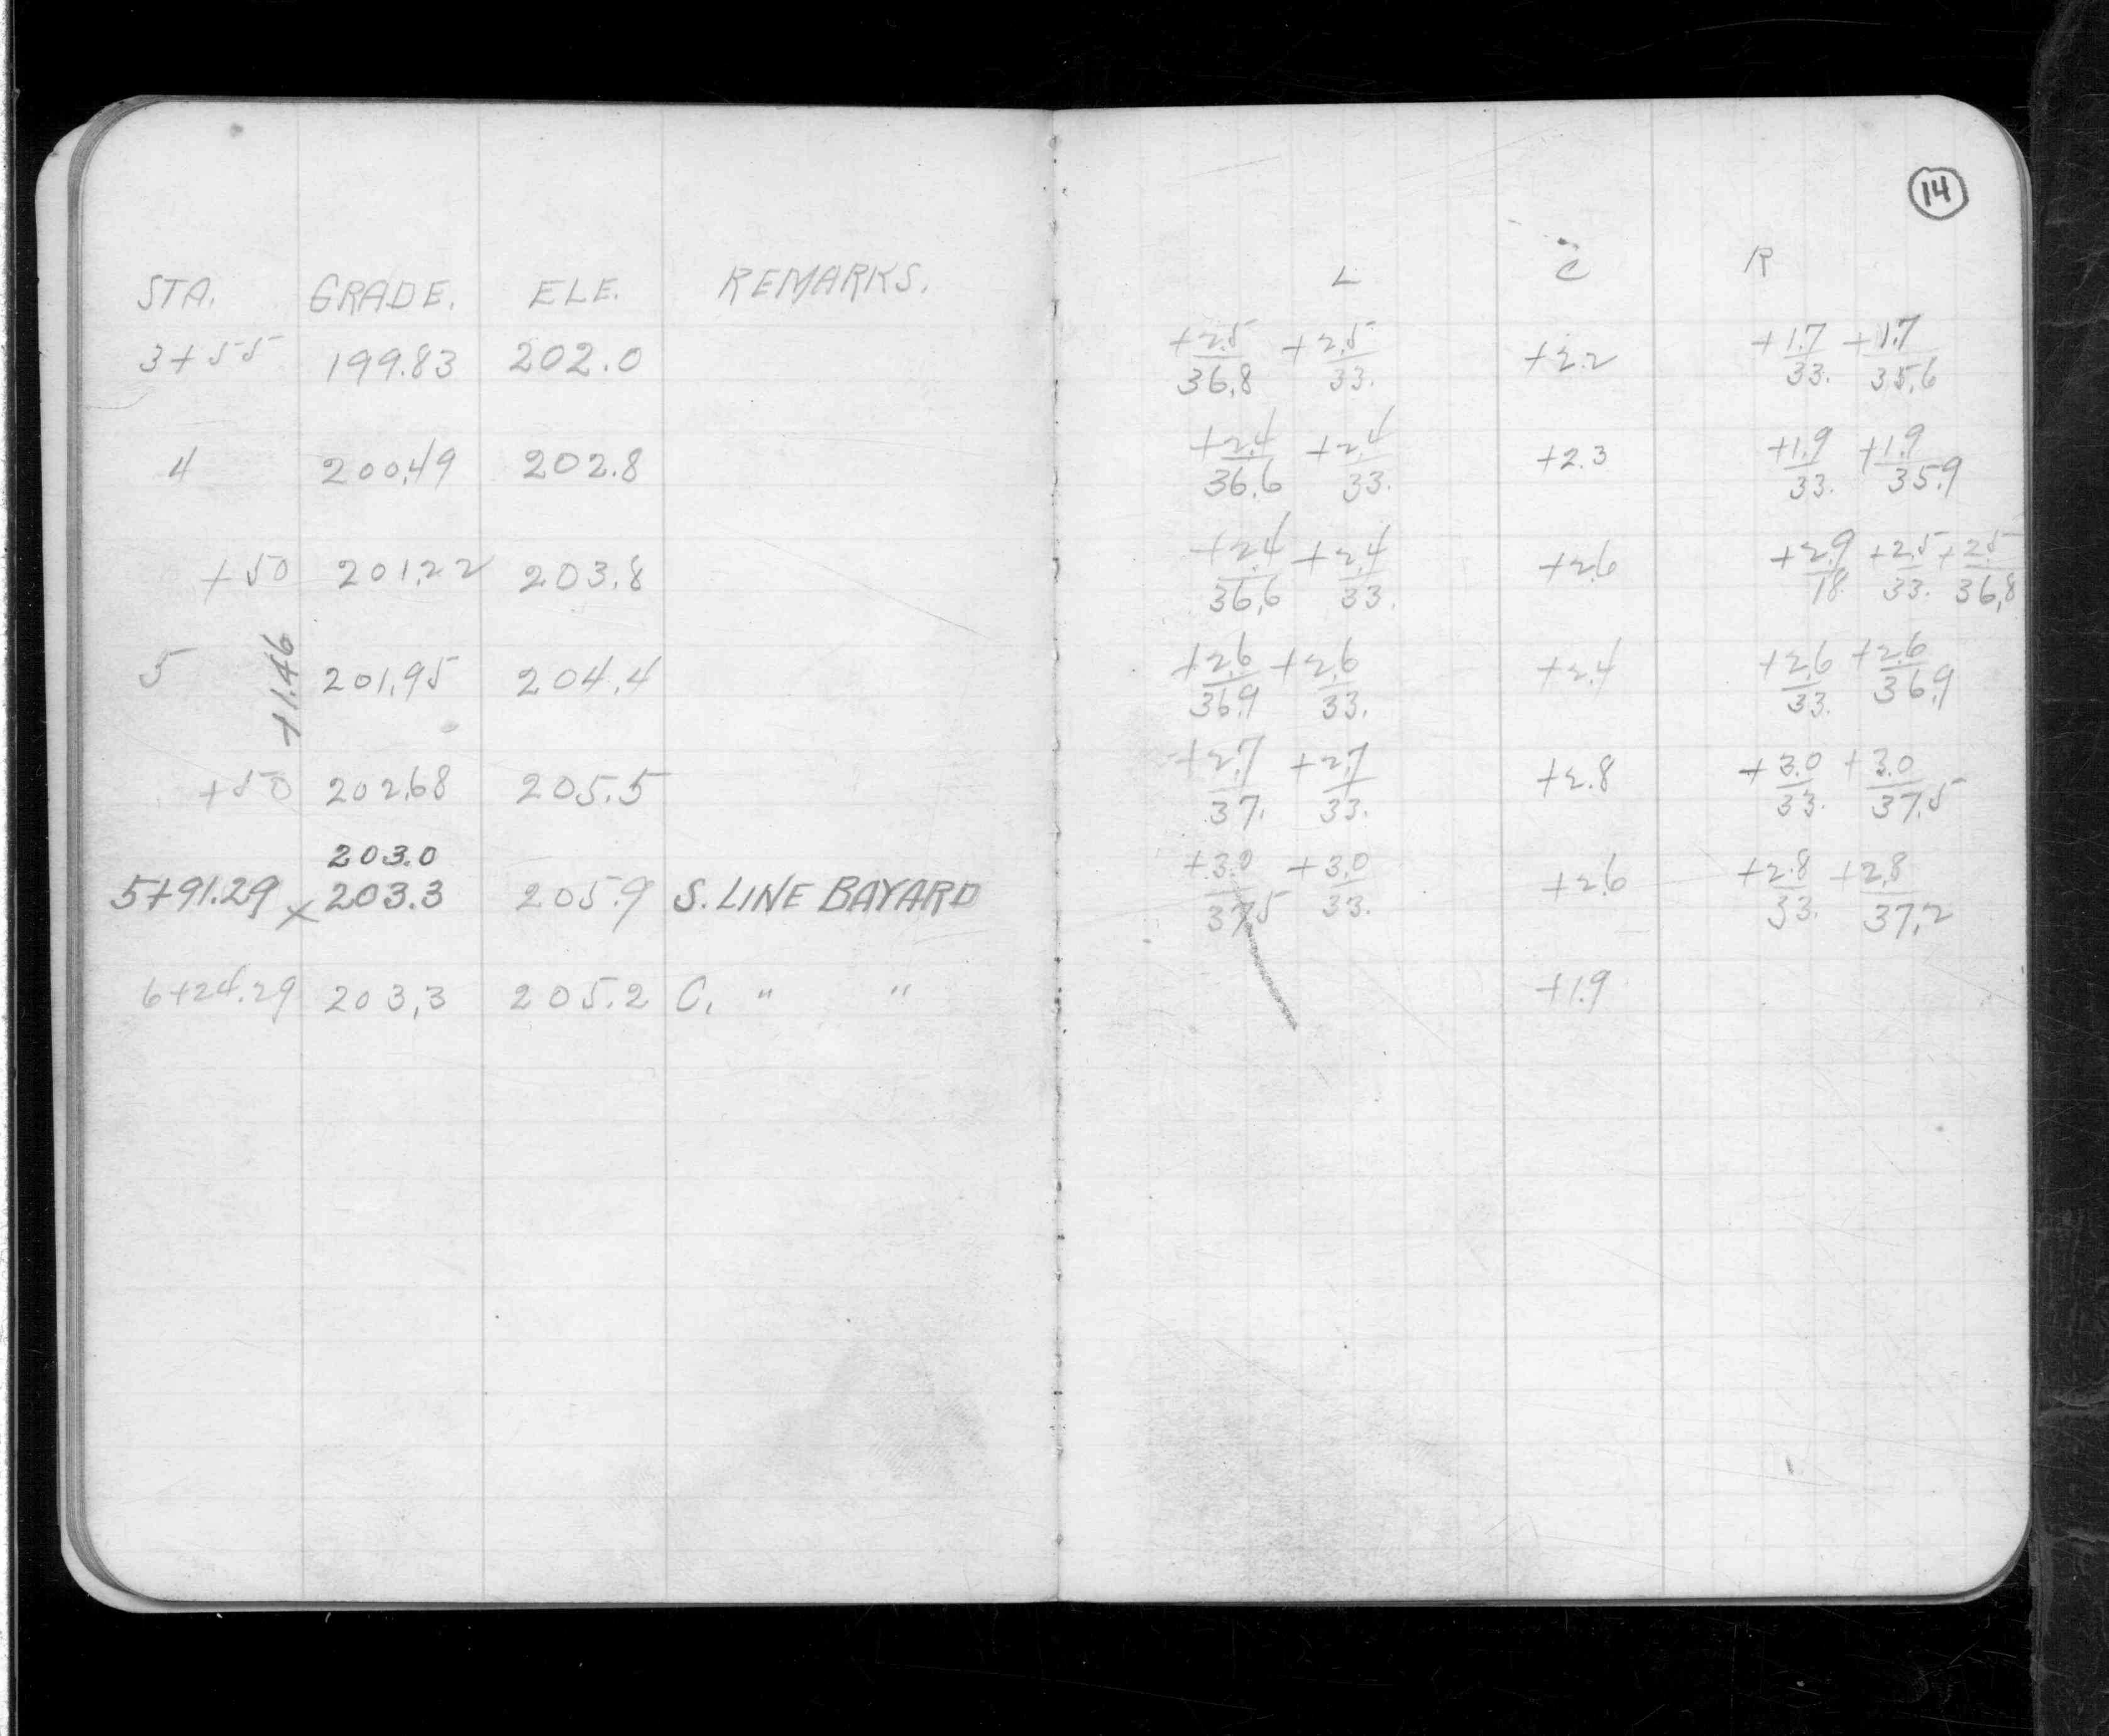 14
STA. GRADE. ELE. REMARKS. L C R
3+55 199.83 202.0 +2.5/36.8 +2.5/33. +2.2 +1.7/33. +1.7/35.6
4 200.49 202.8 +2.4/36.6 +2.4/33. +2.3 +1.9/33. +1.9/35.9
+50 201.22 203.8 +2.4/36.6 +2.4/33. +2.6 +2.9/18. +2.5/33. +2.5/36.8
+1.46
5 201.95 204.4 +2.6/36.9 +2.6/33. +2.4 +2.6/33. +2.6/36.9
+50 202.68 205.5 +2.7/37. +2.7/33. +2.8 +3.0/33. +3.0/37.5
203.0
5+91.29 x 203.3 205.9 S. LINE BAYARD +3.0/37.5 +3.0/33. +2.6 +2.8/33. +2.8/37.2
6+24.29 203.3 205.2 C. " " +1.9